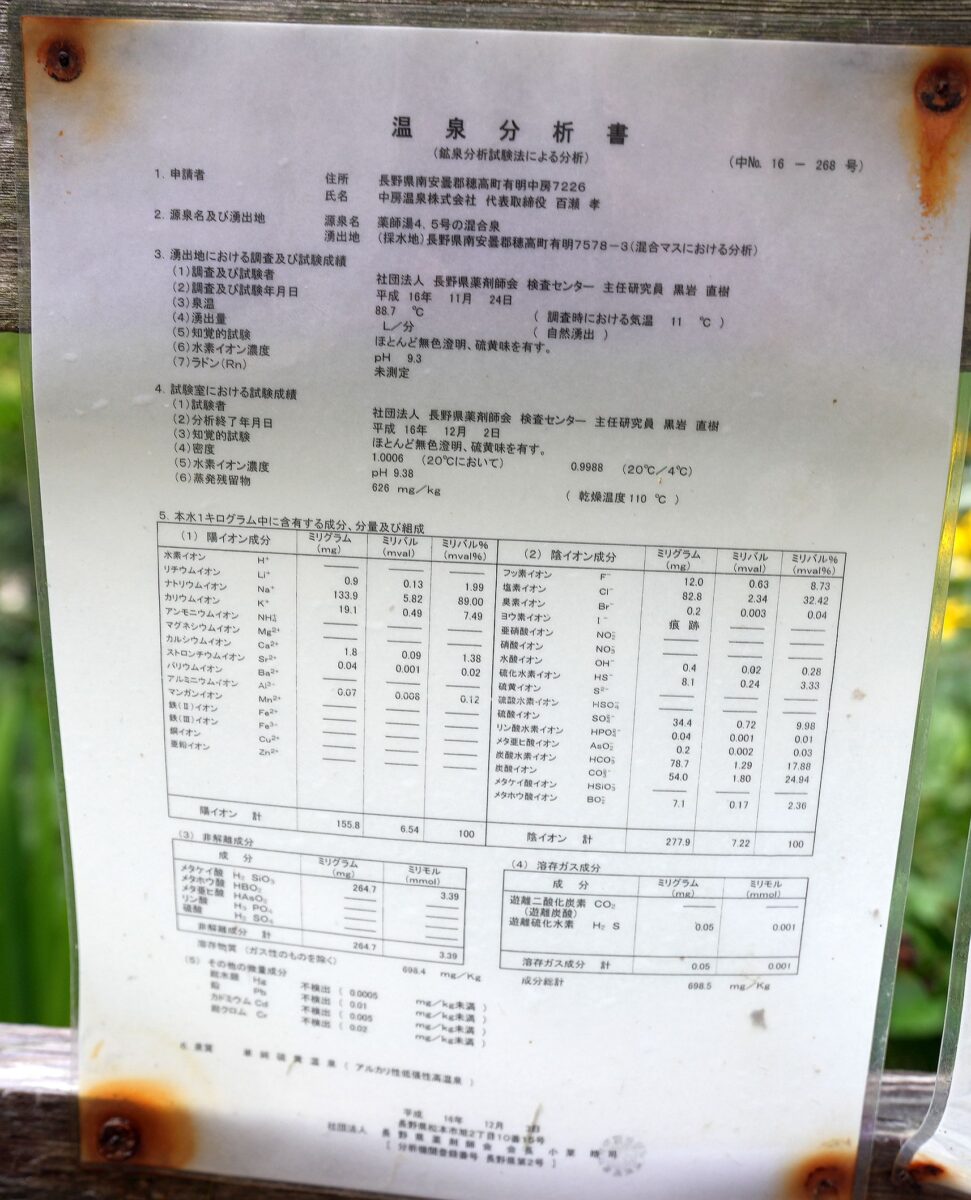 温泉分析書
(鉱泉分析試験法による分析)
(中No. 16 － 268 号)
1. 申請者 住所 長野県南安曇郡穂高町有明中房7226
氏名 中房温泉株式会社 代表取締役 百瀬 孝
2. 源泉名及び湧出地 源泉名 薬師湯4，5号の混合泉
湧出地 (採水地)長野県南安曇郡穂高町有明7578－3(混合マスにおける分析)
3. 湧出地における調査及び試験成績
(1)調査及び試験者 社団法人 長野県薬剤師会 検査センター 主任研究員 黒岩 直樹
(2)調査及び試験年月日 平成 16年 11月 24日
(3)泉温 88.7 ℃ ( 調査時における気温 11 ℃ )
(4)湧出量 L／分 ( 自然湧出 )
(5)知覚的試験 ほとんど無色澄明、硫黄味を有す。
(6)水素イオン濃度 pH 9.3
(7)ラドン(Rn) 未測定
4. 試験室における試験成績
(1)試験者 社団法人 長野県薬剤師会 検査センター 主任研究員 黒岩 直樹
(2)分析終了年月日 平成 16年 12月 2日
(3)知覚的試験 ほとんど無色澄明、硫黄味を有す。
(4)密度 1.0006 (20℃において) 0.9988 (20℃/4℃)
(5)水素イオン濃度 pH 9.38
(6)蒸発残留物 626 mg／kg ( 乾燥温度110 ℃ )
5. 本水1キログラム中に含有する成分、分量及び組成
(1) 陽イオン成分 ミリグラム(mg) ミリバル(mval) ミリバル%(mval%)
水素イオン H⁺ ― ― ―
リチウムイオン Li⁺ 0.9 0.13 1.99
ナトリウムイオン Na⁺ 133.9 5.82 89.00
カリウムイオン K⁺ 19.1 0.49 7.49
アンモニウムイオン NH₄⁺ ― ― ―
マグネシウムイオン Mg²⁺ ― ― ―
カルシウムイオン Ca²⁺ 1.8 0.09 1.38
ストロンチウムイオン Sr²⁺ 0.04 0.001 0.02
バリウムイオン Ba²⁺ ― ― ―
アルミニウムイオン Al³⁺ 0.07 0.008 0.12
マンガンイオン Mn²⁺ ― ― ―
鉄(Ⅱ)イオン Fe²⁺ ― ― ―
鉄(Ⅲ)イオン Fe³⁺ ― ― ―
銅イオン Cu²⁺ ― ― ―
亜鉛イオン Zn²⁺ ― ― ―
陽イオン 計 155.8 6.54 100
(2) 陰イオン成分 ミリグラム(mg) ミリバル(mval) ミリバル%(mval%)
フッ素イオン F⁻ 12.0 0.63 8.73
塩素イオン Cl⁻ 82.8 2.34 32.42
臭素イオン Br⁻ 0.2 0.003 0.04
ヨウ素イオン I⁻ 痕跡 ― ―
亜硝酸イオン NO₂⁻ ― ― ―
硝酸イオン NO₃⁻ ― ― ―
水酸イオン OH⁻ 0.4 0.02 0.28
硫化水素イオン HS⁻ 8.1 0.24 3.33
硫黄イオン S²⁻ ― ― ―
硫酸水素イオン HSO₄⁻ ― ― ―
硫酸イオン SO₄²⁻ 34.4 0.72 9.98
リン酸水素イオン HPO₄²⁻ 0.04 0.001 0.01
メタ亜ヒ酸イオン AsO₂⁻ 0.2 0.002 0.03
炭酸水素イオン HCO₃⁻ 78.7 1.29 17.88
炭酸イオン CO₃²⁻ 54.0 1.80 24.94
メタケイ酸イオン HSiO₃⁻
メタホウ酸イオン BO₂⁻ 7.1 0.17 2.36
陰イオン 計 277.9 7.22 100
(3) 非解離成分
成 分 ミリグラム(mg) ミリモル(mmol)
メタケイ酸 H₂SiO₃ 264.7 3.39
メタホウ酸 HBO₂ ― ―
メタ亜ヒ酸 HAsO₂ ― ―
リン酸 H₃PO₄ ― ―
硫酸 H₂SO₄ ― ―
非解離成分 計 264.7 3.39
溶存物質 (ガス性のものを除く) 698.4 mg／Kg
(4) 溶存ガス成分
成 分 ミリグラム(mg) ミリモル(mmol)
遊離二酸化炭素 CO₂ ― ―
(遊離炭酸)
遊離硫化水素 H₂S 0.05 0.001
溶存ガス成分 計 0.05 0.001
成分総計 698.5 mg／Kg
(5) その他の微量成分
総水銀 Hg 不検出 ( 0.0005 mg／kg未満 )
鉛 Pb 不検出 ( 0.01 mg／kg未満 )
カドミウム Cd 不検出 ( 0.005 mg／kg未満 )
総クロム Cr 不検出 ( 0.02 mg／kg未満 )
6. 泉質 単純硫黄温泉 ( アルカリ性低張性高温泉 )
平成 16年 12月
長野県松本市旭2丁目10番15号
社団法人 長野県薬剤師会 会長 小栗
[ 分析機関登録番号 長野県第2号 ]